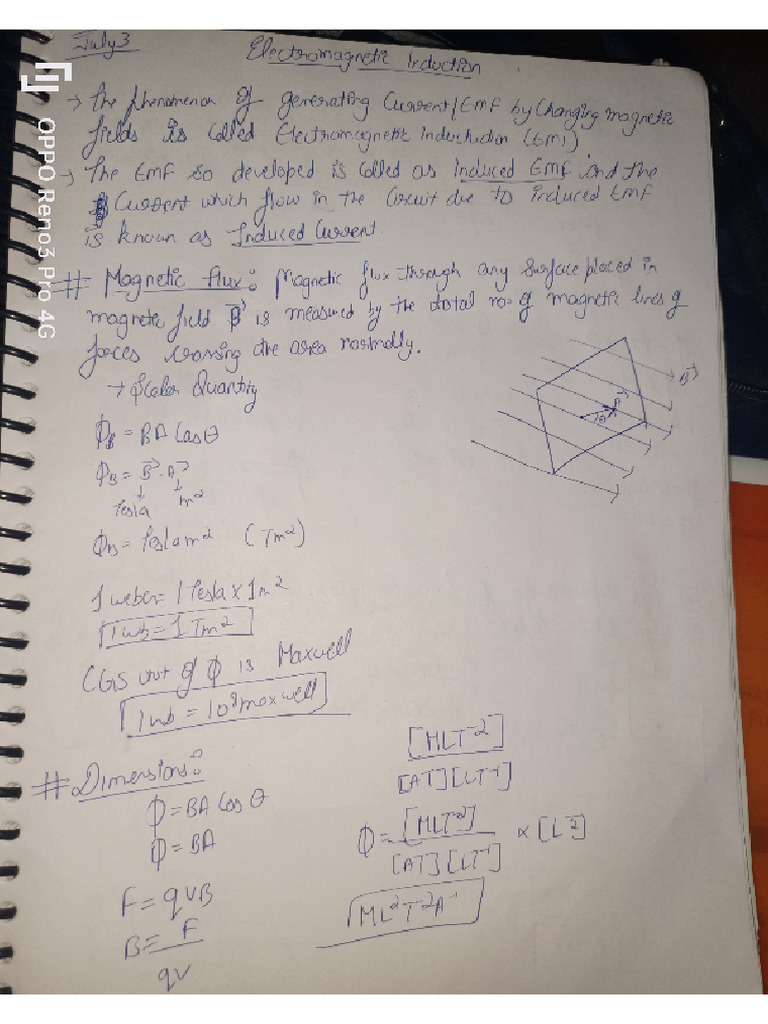 July 3
Electromagnetic Induction
→ The phenomenon of generating Current/EMF by Changing magnetic
fields is Called Electromagnetic Induchution (EMI)
→ The EMF so developed is Called as Induced EMF and the
Current which flow in the Circuit due to induced EMF
is known as Induced Current.
# Magnetic flux: Magnetic flux through any Surface placed in
magnetic field B⃗ is measured by the total no. of magnetic lines of
forces crossing the area normally.
→ Scalar Quantity
ϕB = BA Cosθ
ϕB = B⃗ . A⃗
↓ ↓
Tesla m²
ϕB = Tesla m² (Tm²)
B⃗
A⃗
θ
1 weber = 1 Tesla × 1m²
1 wb = 1 Tm²
CGS unit of ϕ is Maxwell
1 wb = 10⁸ maxwell
# Dimensions:
ϕ = BA Cos θ
ϕ = BA
F = qVB
B = F
qv
[MLT⁻²]
[AT][LT⁻¹]
ϕ = [MLT⁻²] × [L²]
[AT][LT⁻¹]
ML²T⁻²A⁻¹
OPPO Reno3 Pro 4G